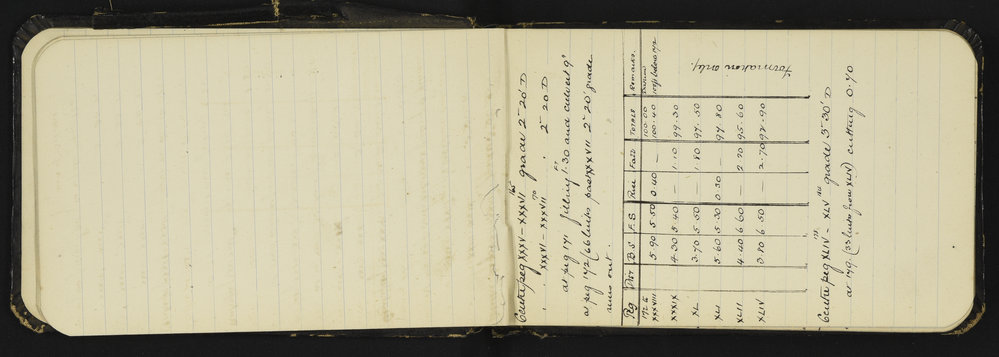 Centre peg XXXV – XXXVI 165 grade 2° 20' D
" " XXXVI – XXXVII 170 " 2° 20' D
at peg 171 filling 1.30 and culvert 9"
at peg 172 (66 links past XXXVII 2° 20' grade
runs out.
Peg Dist B.S F.S Rise Fall TOTALS Remarks.
172 & 100.00 Datum
XXXVIII 5.90 5.50 0.40 — 100.40 peg below 172
XXXIX 4.30 5.40 — 1.10 99.30
XL 3.70 5.50 — 1.80 97.50
XLI 5.60 5.30 0.30 — 97.80
XLII 4.40 6.60 — 2.20 95.60
XLIV 3.70 6.50 — 2.70 92.90
Formation only.
Centre peg XLIV – XLV grade 3° 30' D
at 179 (33 links from XLIV) cutting 0.70